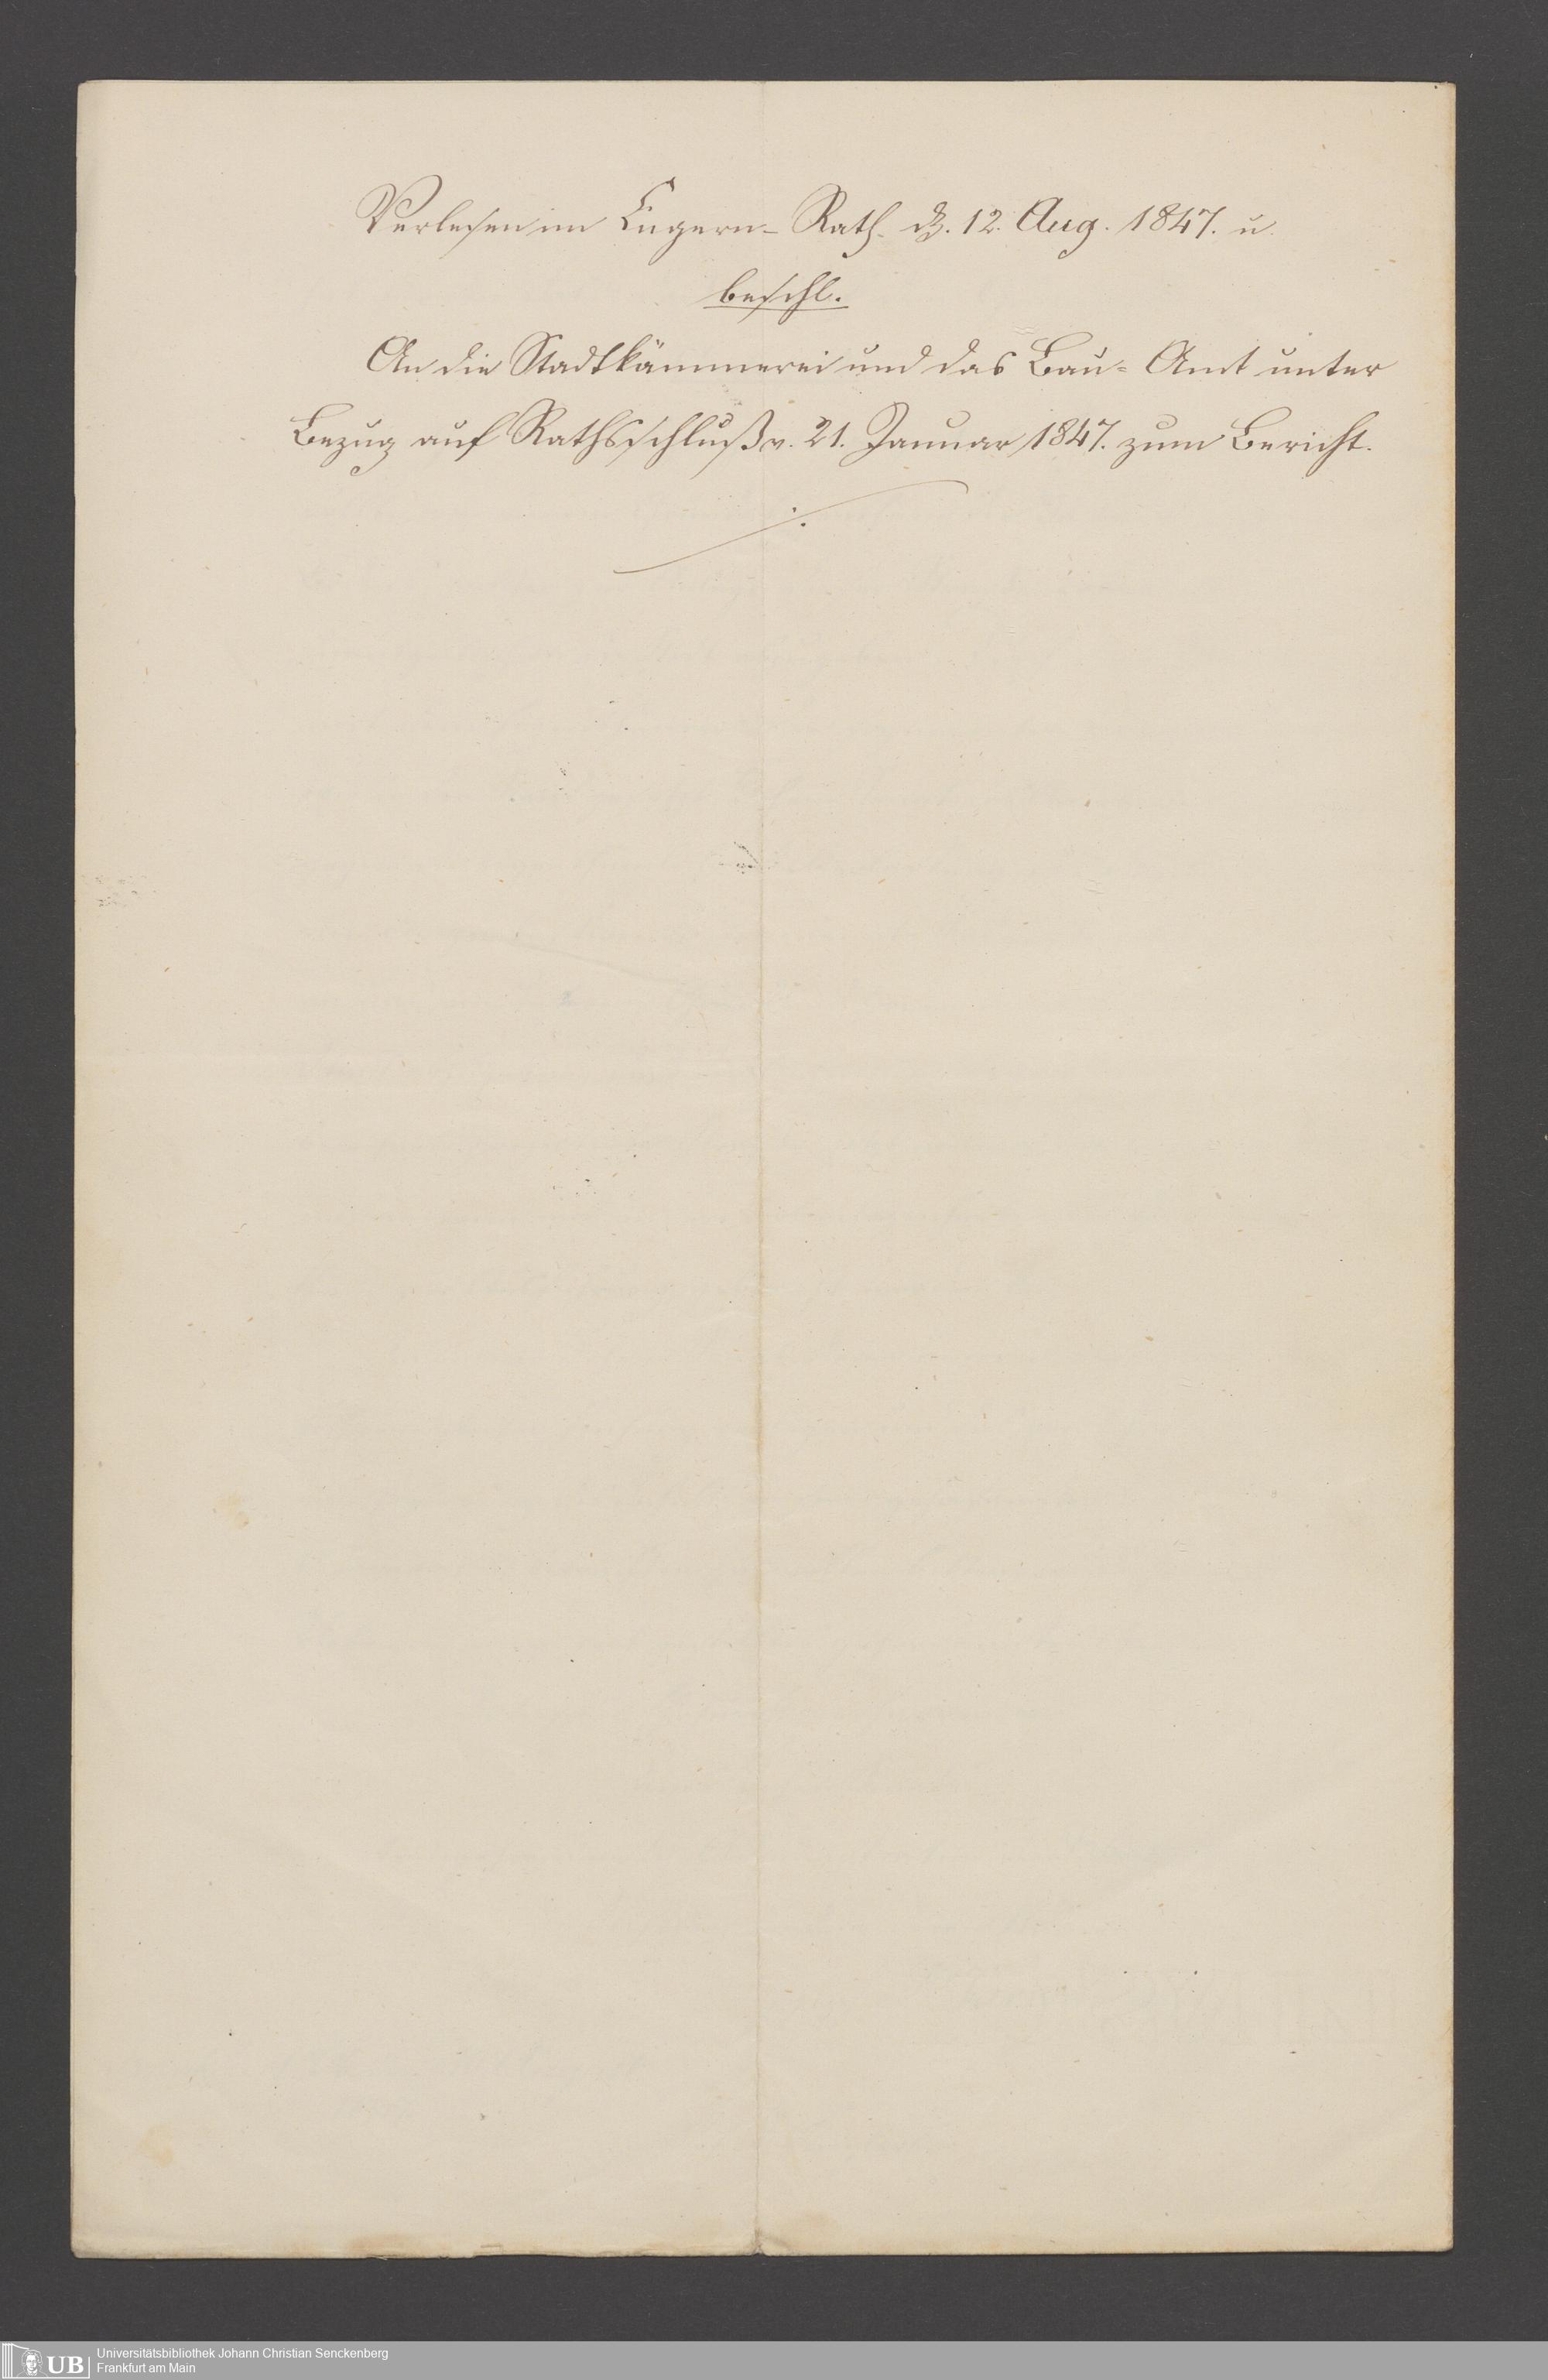 Verlesen im Engern-Rath d. 12. Aug. 1847. u.
beschl.
An die Stadtkämmerei und das Bau-Amt unter
Bezug auf Rathsschluß v. 21. Januar 1847. zum Bericht.
UB
Universitätsbibliothek Johann Christian Senckenberg
Frankfurt am Main